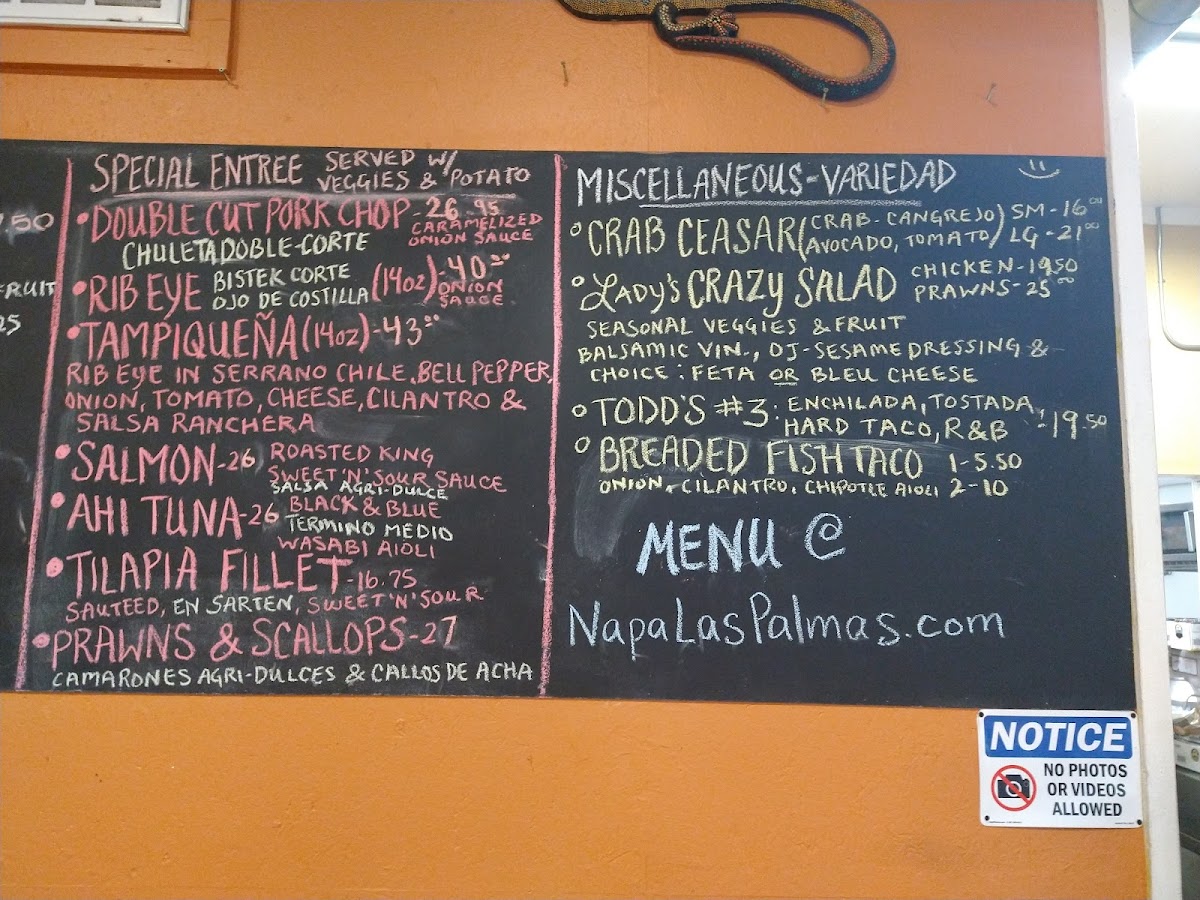 7.50
FRUIT
25
SPECIAL ENTREE SERVED W/
VEGGIES & POTATO
• DOUBLE CUT PORK CHOP - 26.95
CARAMELIZED
ONION SAUCE
CHULETA DOBLE-CORTE
• RIB EYE BISTEK CORTE
OJO DE COSTILLA (14oz) - 40.00
ONION
SAUCE
• TAMPIQUEÑA (14oz) - 43.00
RIB EYE IN SERRANO CHILE, BELL PEPPER,
ONION, TOMATO, CHEESE, CILANTRO &
SALSA RANCHERA
• SALMON - 26 ROASTED KING
SWEET 'N' SOUR SAUCE
SALSA AGRI-DULCE
• AHI TUNA - 26 BLACK & BLUE
TERMINO MEDIO
WASABI AIOLI
• TILAPIA FILLET - 16.75
SAUTEED, EN SARTEN, SWEET 'N' SOUR
• PRAWNS & SCALLOPS - 27
CAMARONES AGRI-DULCES & CALLOS DE ACHA
MISCELLANEOUS - VARIEDAD
° CRAB CEASAR (CRAB - CANGREJO) SM - 16.00
AVOCADO, TOMATO) LG - 21.00
° LADY'S CRAZY SALAD CHICKEN - 19.50
PRAWNS - 25.00
SEASONAL VEGGIES & FRUIT
BALSAMIC VIN., OJ-SESAME DRESSING &
CHOICE: FETA OR BLEU CHEESE
° TODD'S #3: ENCHILADA, TOSTADA,
HARD TACO, R&B - 19.50
° BREADED FISH TACO 1 - 5.50
ONION, CILANTRO, CHIPOTLE AIOLI 2 - 10
MENU @
NapaLasPalmas.com
NOTICE
NO PHOTOS
OR VIDEOS
ALLOWED